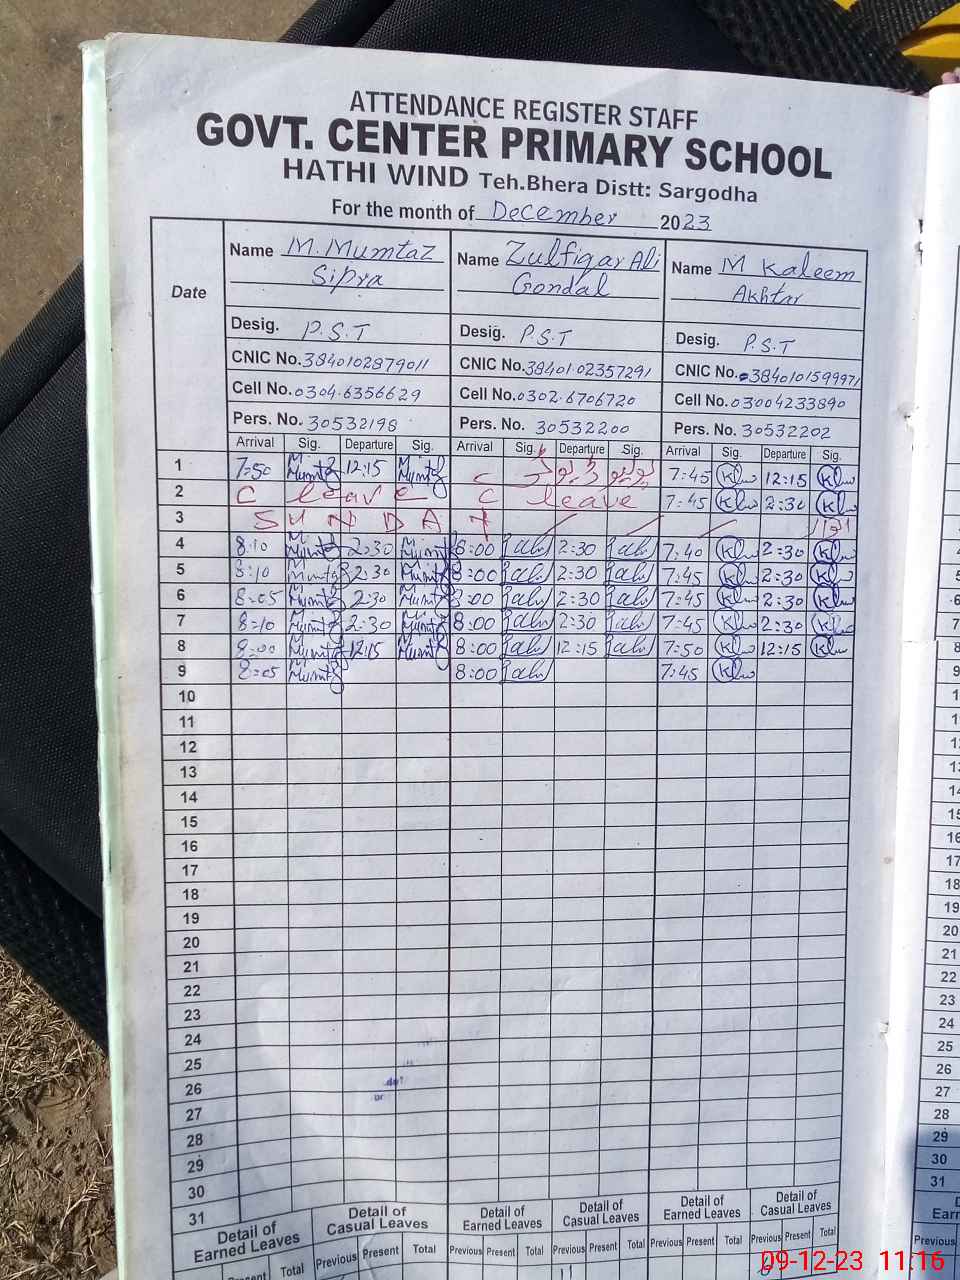 ATTENDANCE REGISTER STAFF
GOVT. CENTER PRIMARY SCHOOL
HATHI WIND Teh.Bhera Distt: Sargodha
For the month of December 2023
Date
Name M. Mumtaz Sipra
Name Zulfiqar Ali Gondal
Name M Kaleem Akhtar
Desig. P.S.T
Desig. P.S.T
Desig. P.S.T
CNIC No. 3840102879011
CNIC No. 38401.02357291
CNIC No. 3840101599971
Cell No. 0304.6356629
Cell No. 0302.6706720
Cell No. 03004233890
Pers. No. 30532198
Pers. No. 30532200
Pers. No. 30532202
Arrival Sig. Departure Sig. Arrival Sig. Departure Sig. Arrival Sig. Departure Sig.
1 7:50 Mumtaz 12:15 Mumtaz 7:45 12:15
2 C leave C leave 7:45 2:30
3 SUNDAY
4 8:10 Mumtaz 2:30 Mumtaz 8:00 2:30 7:40 2:30
5 8:10 Mumtaz 2:30 Mumtaz 8:00 2:30 7:45 2:30
6 8:05 Mumtaz 2:30 Mumtaz 8:00 2:30 7:45 2:30
7 8:10 Mumtaz 2:30 Mumtaz 8:00 2:30 7:45 2:30
8 8:00 Mumtaz 12:15 Mumtaz 8:00 12:15 7:50 12:15
9 8:05 Mumtaz 8:00 7:45
10
11
12
13
14
15
16
17
18
19
20
21
22
23
24
25
26
27
28
29
30
31
Detail of Earned Leaves Detail of Casual Leaves Detail of Earned Leaves Detail of Casual Leaves Detail of Earned Leaves Detail of Casual Leaves
Present Total Previous Present Total Previous Present Total Previous Present Total Previous Present Total Previous Present Total
09-12-23 11:16